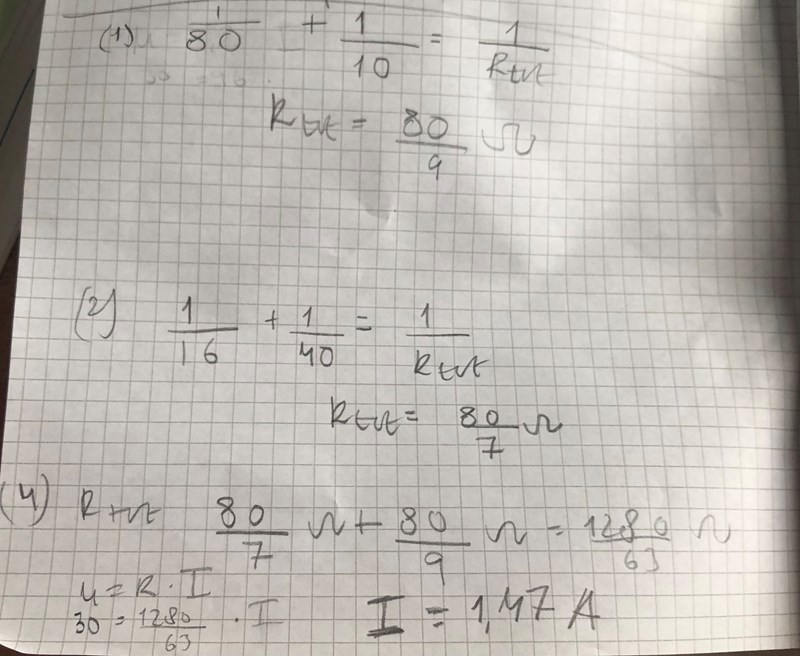 (1) 1/80 + 1/10 = 1/Rtot
Rtot = 80/9 Ω
(2) 1/16 + 1/40 = 1/Rtot
Rtot = 80/7 Ω
(4) Rtot 80/7 Ω + 80/9 Ω = 1280/63 Ω
U = R · I
30 = 1280/63 · I I = 1,47 A